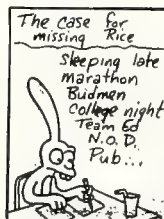 The case for
missing Rice
Sleeping late
marathon
Budmen
College night
Team Ed
N.O.D.
Pub...